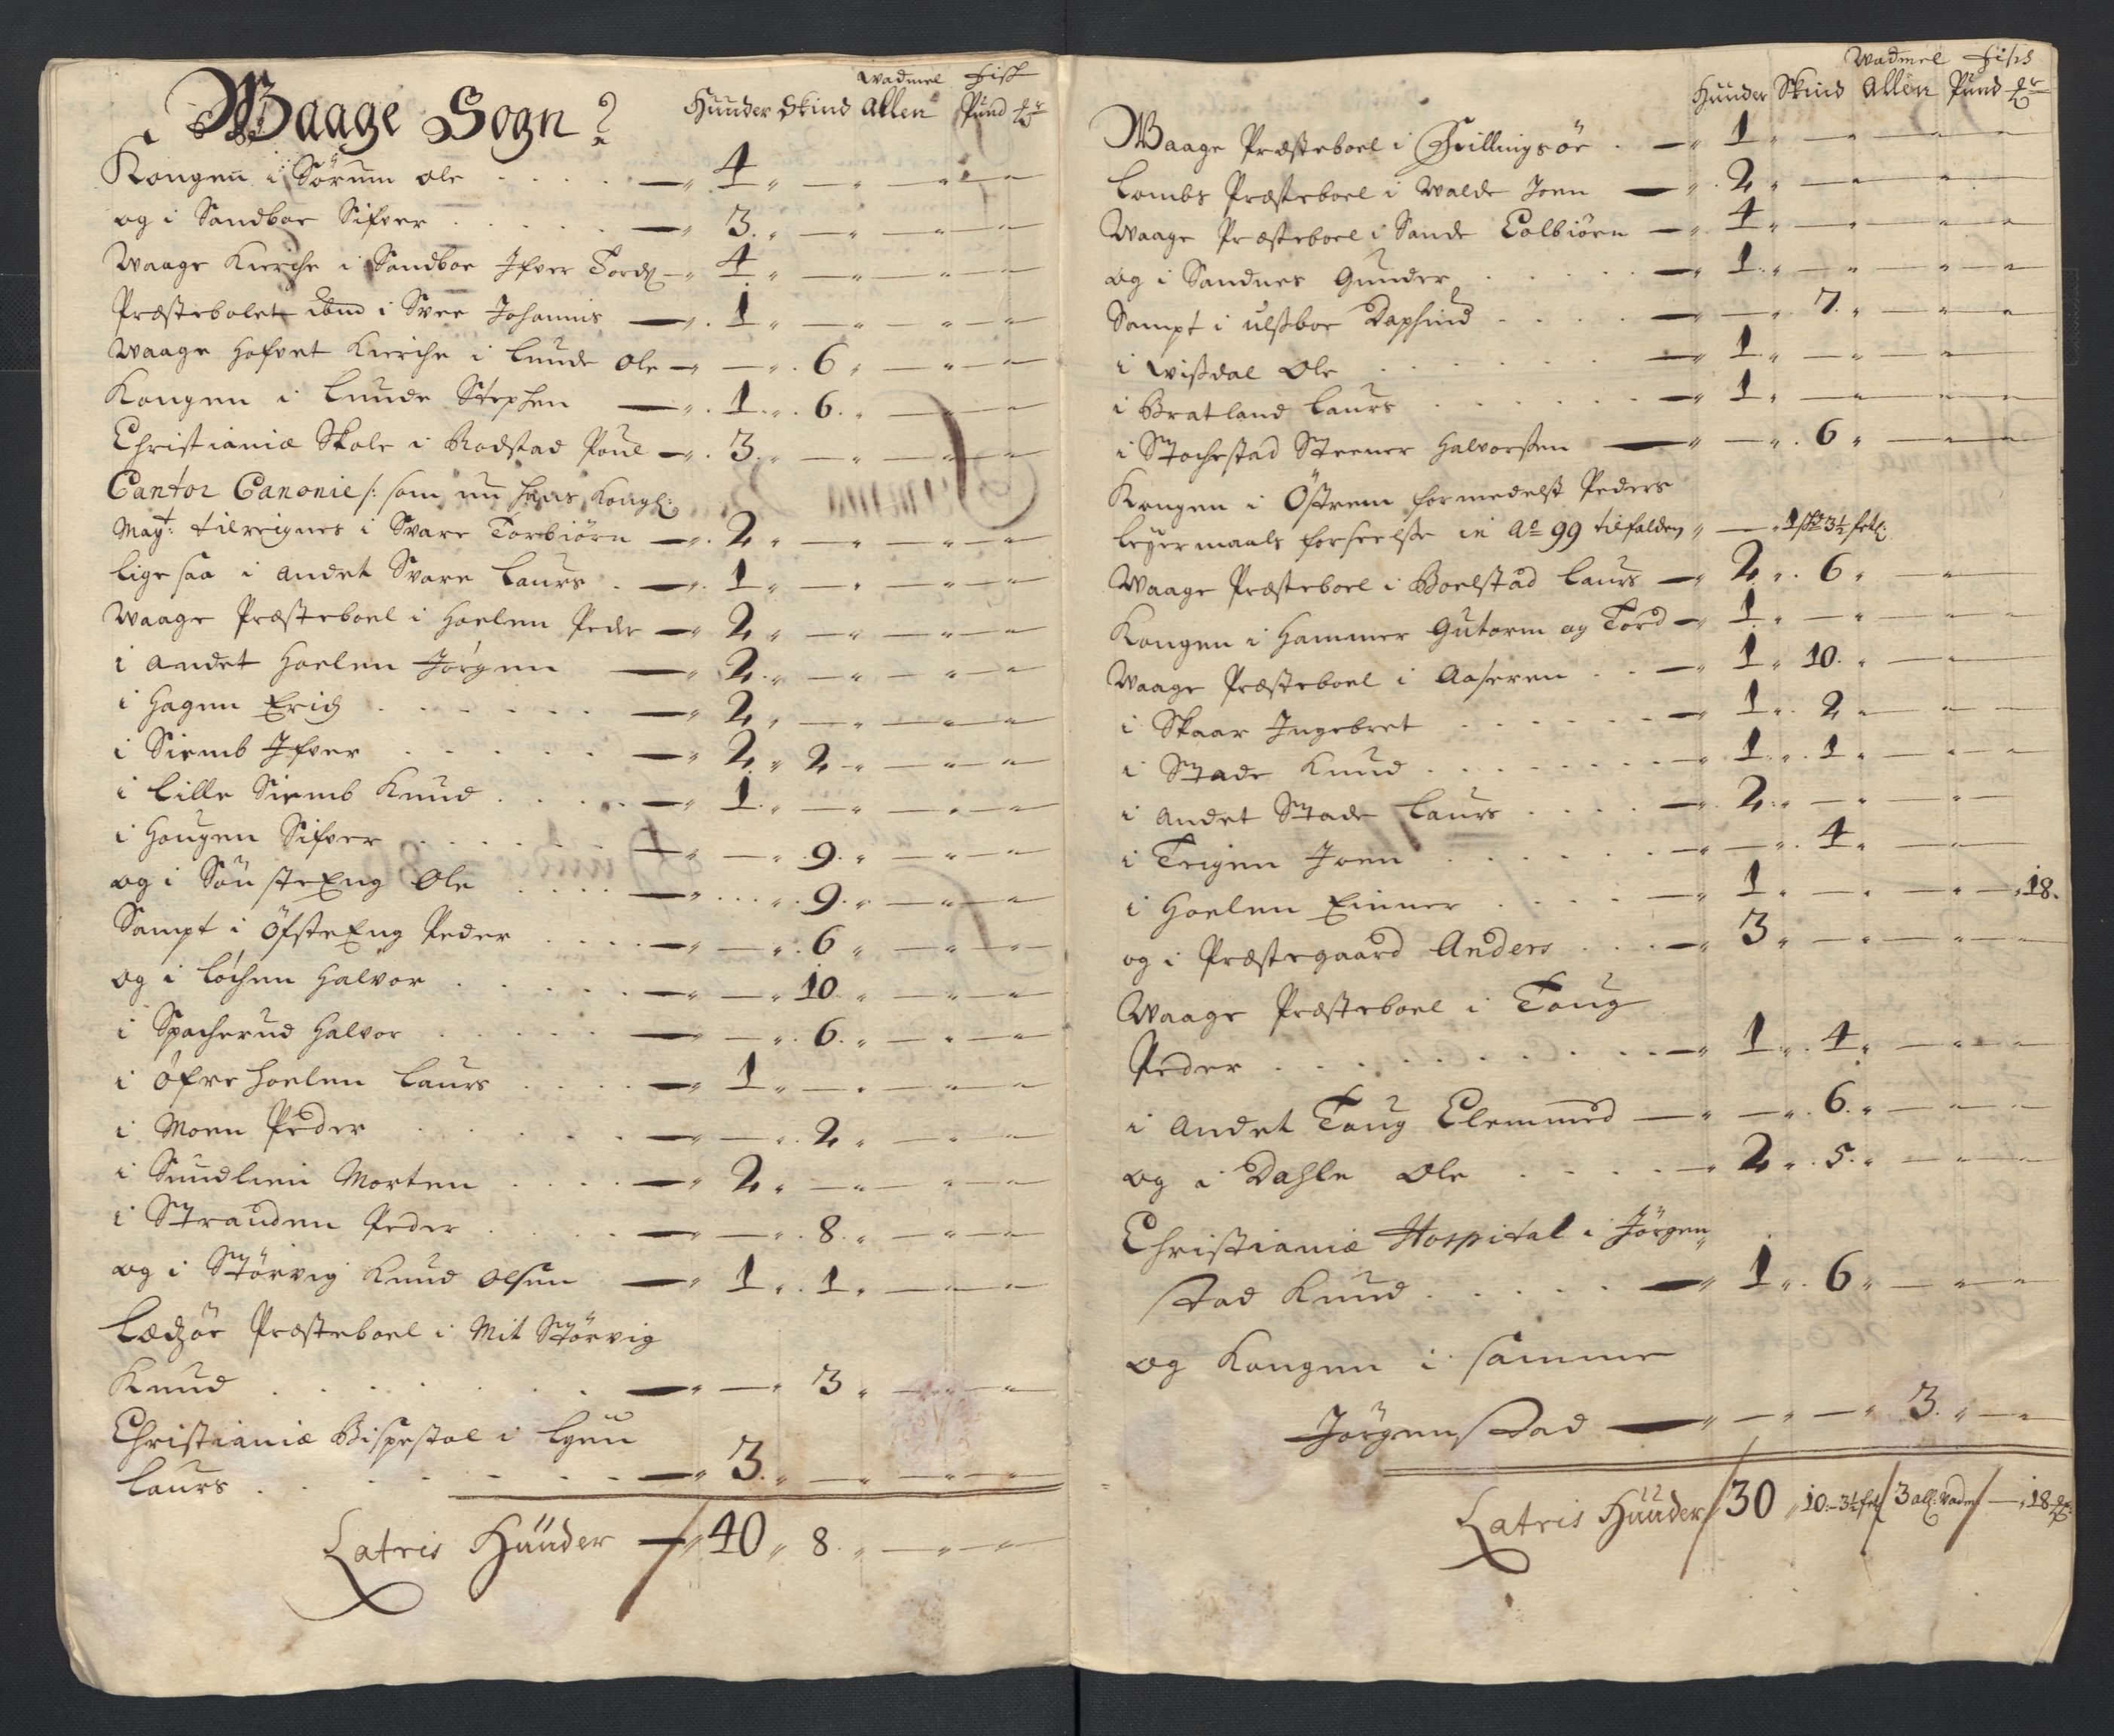 Wadmel Fisk
i Waage Sogn
Huuder Skind Allen Pund
Kongen i Sörum ole 4
og i Sandboe Sifver 3
Waage Kierche i Sandboe Ifver Tords 4
Præstebolet ibm i Svee Johannis 1
Waage Hofvet Kierche i Lunde Ole 6
Kongen i Lunde Stephen 1 6
Christianiæ Skole i Rodstad Poul 3
Cantor Canonie /: som nu hans Kongl:
Mayt: tilreignes i Svare Torbiörn 2
lige saa i andet Svare Laurs 1
Waage Præsteboel i Hoelen Peder 2
i andet Hoelen Jörgen 2
i Hagen Erich 2
i Siemb Ifver 2 2
i Lille Siemb Knud 1
i Hougen Sifver 9
og i Söu steEng Ole 9
Sampt i ÖfsteEng Peder 6
og i Löchen Halvor 10
i Spacherud Halvor 6
i Öfre Hoelen Laurs 1
i Moen Peder 2
i Sundlien Morten 2
i Stranden Peder 8
og i Störvig Knud Olsen 1 1
Ledzöe Præsteboel i Mit Störvig
Knud 3
Christianiæ Bispestol i
Laurs 3
Latris Huuder 40 8
Wadmel Fisk
Huuder Skind Allen Pund
Waage Præsteboel i 1
Lombs Præsteboel i Walde Joen 2
Waage Præsteboel i Sande Colbiörn 4
og i Sandnes Gunder 1
Sampt i ulsboe Daphind 7
i Wisdal Ole 1
i Bratland Laurs 1
i Stochestad Steener Halvorsen 6
Kongen i Östrem formedelst Peders
Leyermaals forseelse in Ao 99 tilfalden 1 sk 3½ fetl:
Waage Præsteboel i Boelstad Laurs 2 6
Kongen i Hammer Gutorm og Tord 1
Waage Præsteboel i Aaseren 1 10
i Skaar Ingebret 1 2
i Stade Knud 1 1
i andet Stade Laurs 2
i Teigen Joen 4
i Hoelen Einner 1 18
og i Præstegaard Anders 3
Waage Præsteboel i Toug
Peder 1 4
i andet Toug Clemmed 6
og i Dahle Ole 2 5
Christianiæ Hospital i Jörgen
stad Knud 1 6
og Kongen i samme
Jörgenstad 3
Latris Huuder 30 10 3½ fetl 3 all: Vadm 18